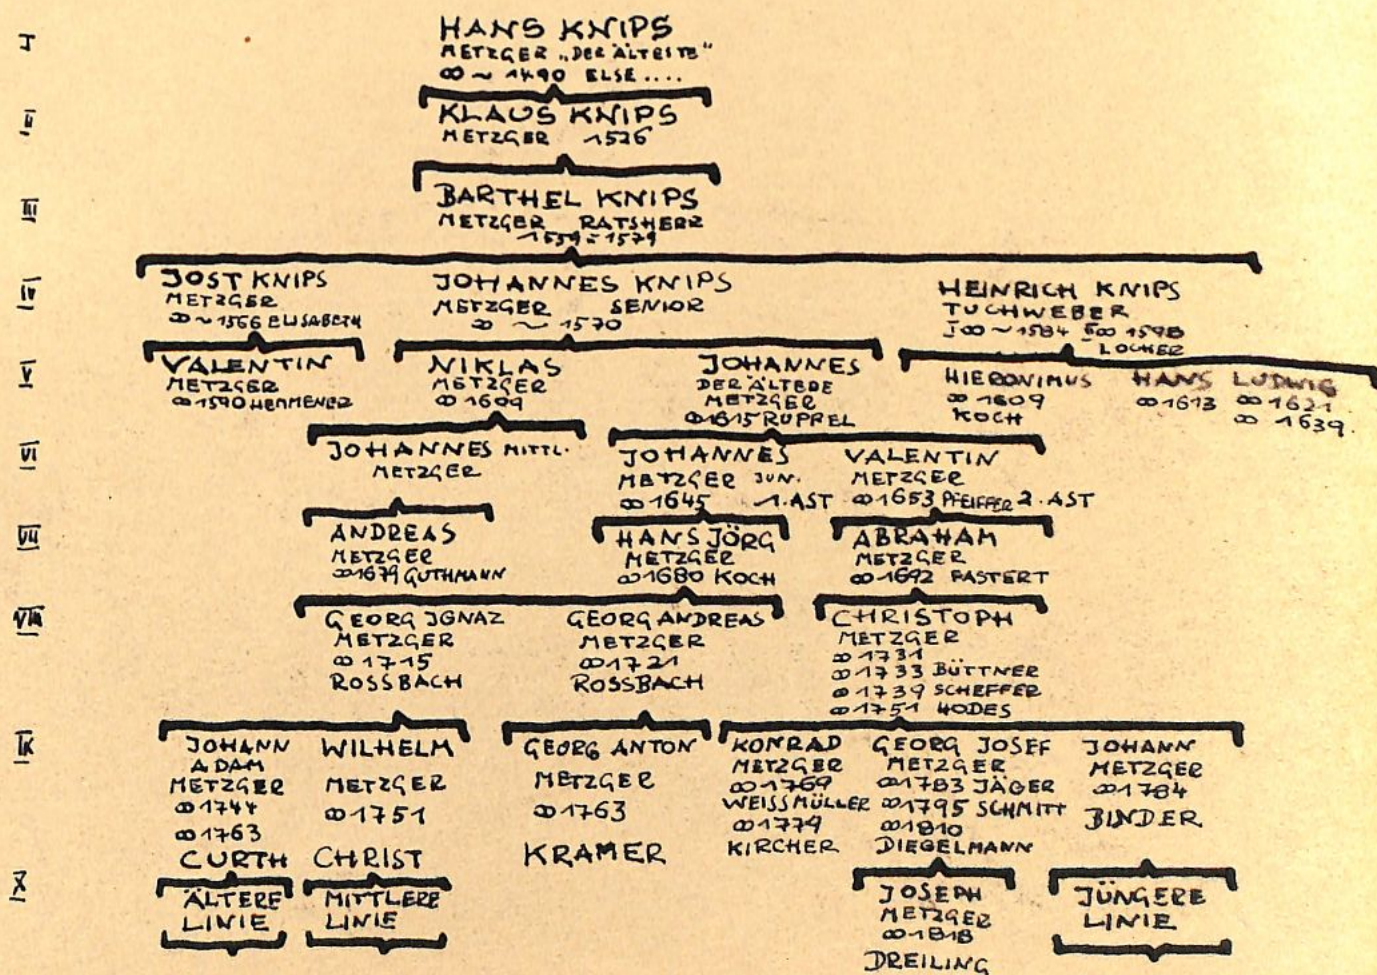 I
HANS KNIPS
METZGER „DER ÄLTESTE"
∞ ~ 1490 ELSE ....
II
KLAUS KNIPS
METZGER 1526
III
BARTHEL KNIPS
METZGER RATSHERR
1559-1579
IV
JOST KNIPS
METZGER
∞ ~ 1566 ELISABETH
JOHANNES KNIPS
METZGER SENIOR
∞ ~ 1570
HEINRICH KNIPS
TUCHWEBER
I∞ ~ 1584 II∞ 1598
LOCHER
V
VALENTIN
METZGER
∞ 1590 HEMMENER
NIKLAS
METZGER
∞ 1609
JOHANNES
DER ÄLTERE
METZGER
∞ 1615 RUPPEL
HIERONIMUS
∞ 1609
KOCH
HANS
∞ 1613
LUDWIG
∞ 1621
∞ 1639.
VI
JOHANNES MITTL.
METZGER
JOHANNES
METZGER JUN.
∞ 1645 1. AST
VALENTIN
METZGER
∞ 1653 PFEIFFER 2. AST
VII
ANDREAS
METZGER
∞ 1679 GUTHMANN
HANS JÖRG
METZGER
∞ 1680 KOCH
ABRAHAM
METZGER
∞ 1692 FASTERT
VIII
GEORG IGNAZ
METZGER
∞ 1715
ROSSBACH
GEORG ANDREAS
METZGER
∞ 1721
ROSSBACH
CHRISTOPH
METZGER
∞ 1731
∞ 1733 BÜTTNER
∞ 1739 SCHEFFER
∞ 1751 HODES
IX
JOHANN
ADAM
METZGER
∞ 1744
∞ 1763
CURTH
WILHELM
METZGER
∞ 1751
CHRIST
GEORG ANTON
METZGER
∞ 1763
KRAMER
KONRAD
METZGER
∞ 1769
WEISSMÜLLER
∞ 1779
KIRCHER
GEORG JOSEF
METZGER
∞ 1783 JÄGER
∞ 1795 SCHMITT
∞ 1810
DIEGELMANN
JOHANN
METZGER
∞ 1784
BINDER
X
ÄLTERE
LINIE
MITTLERE
LINIE
JOSEPH
METZGER
∞ 1818
DREILING
JÜNGERE
LINIE